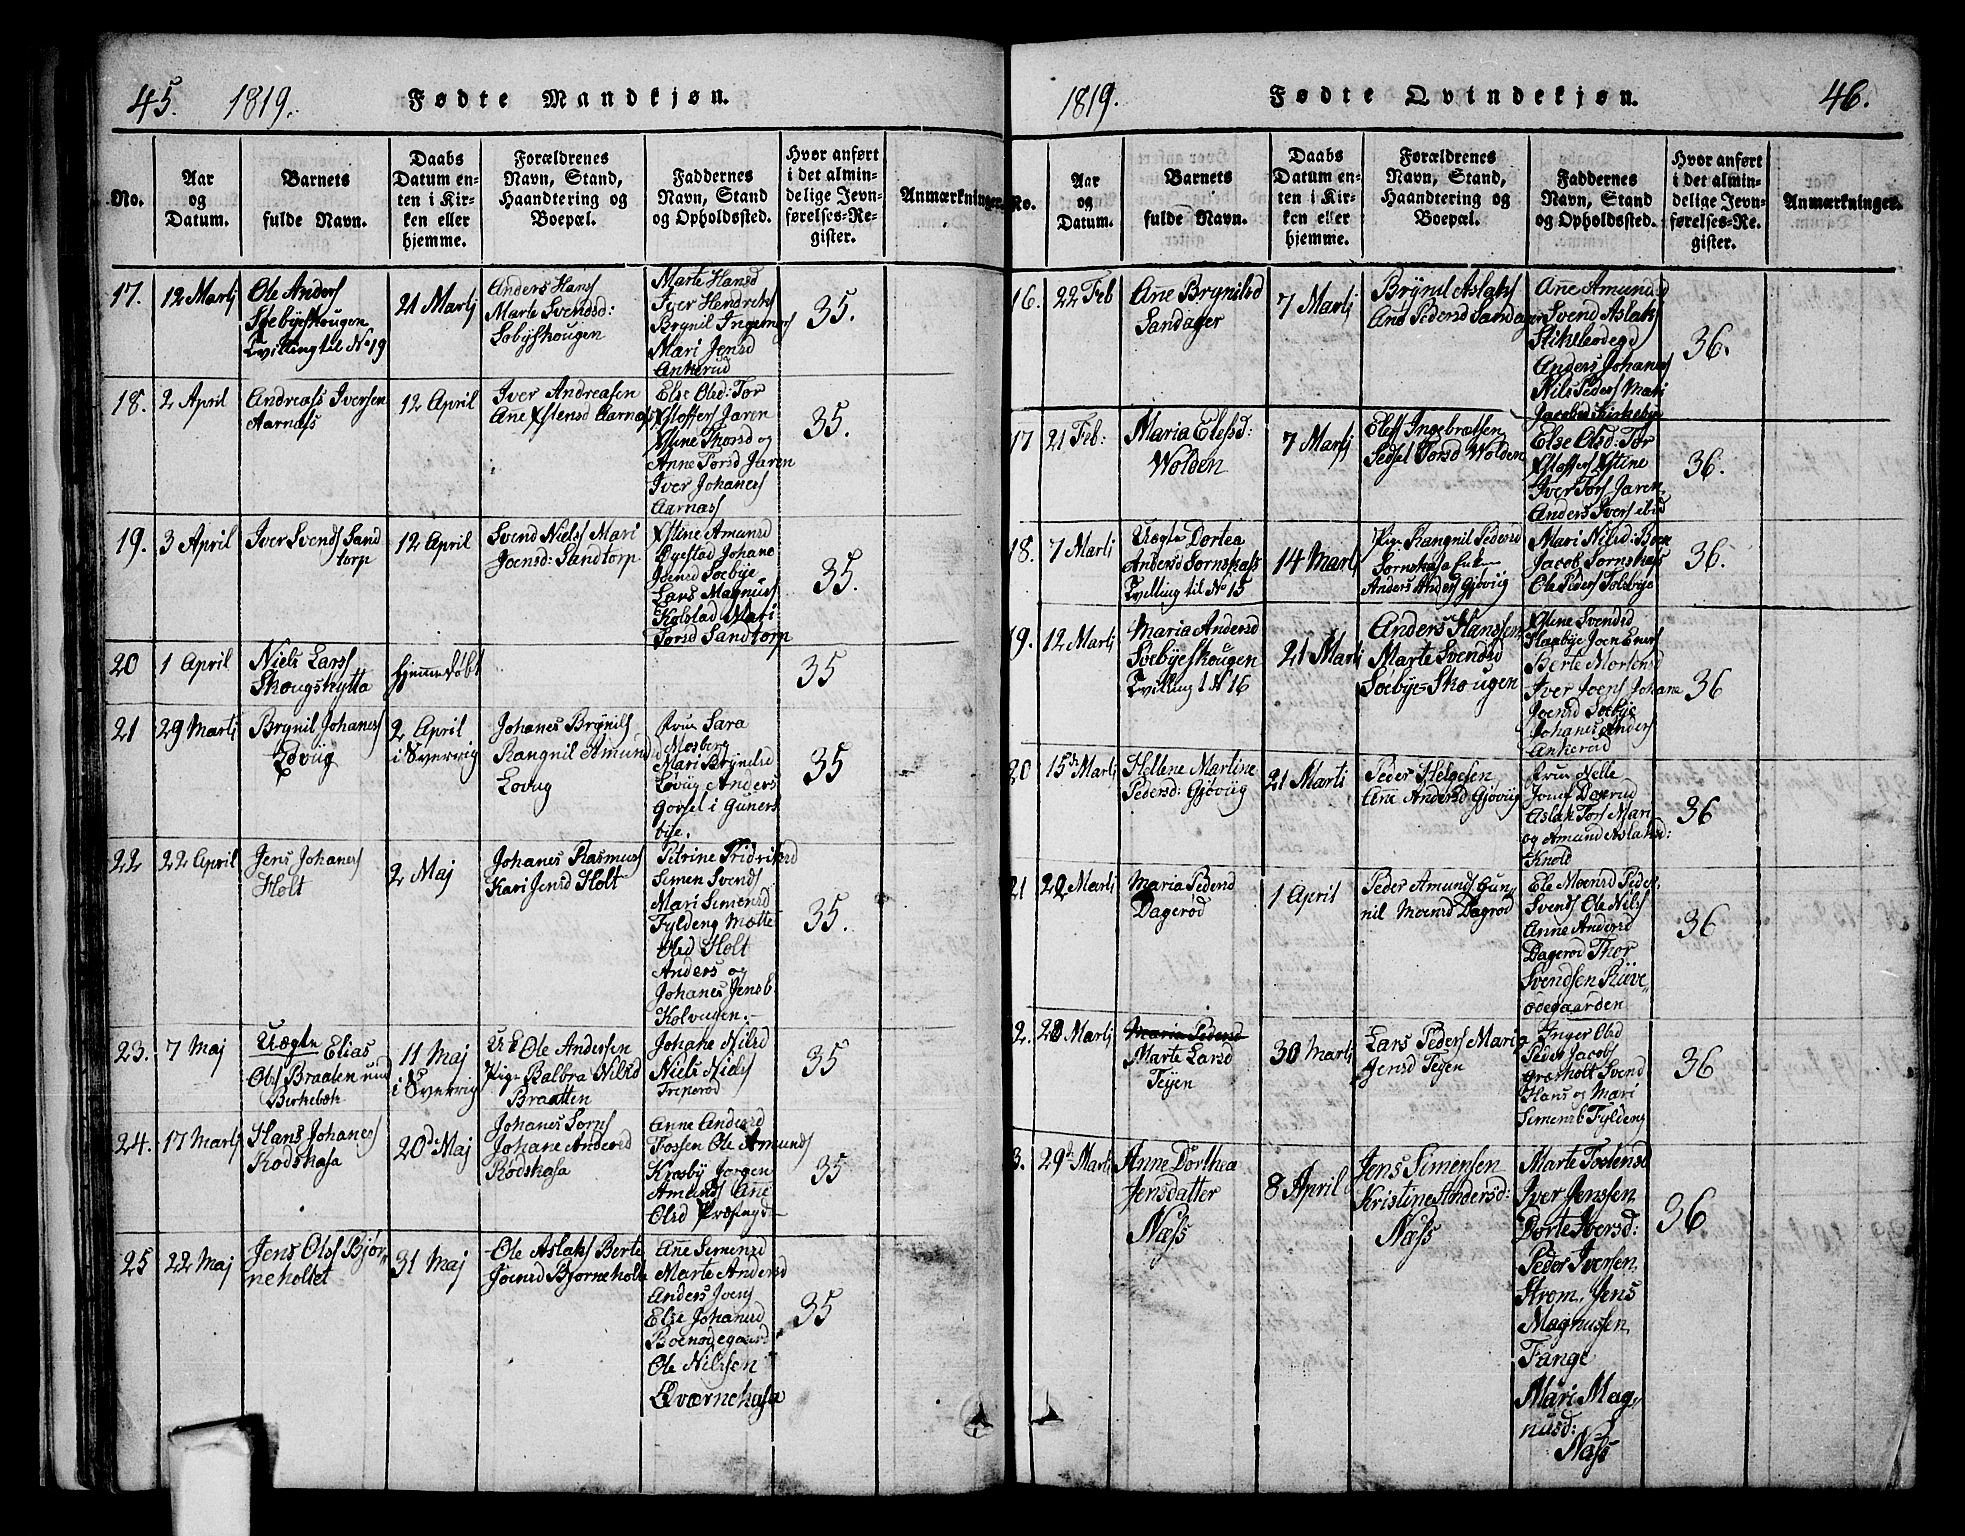 45. 1819. Fødte Mandkjøn.
No.
Aar
og
Datum.
Barnets
fulde Navn.
Daabs
Datum en-
ten i Kir-
ken eller
hjemme.
Forældrenes
Navn, Stand,
Haandtering og
Boepæl.
Faddernes
Navn, Stand
og Opholdssted.
Hvor anført
i det almin-
delige Jevn-
førelses-Re-
gister.
Anmærkninger.
17.
12 Martj
Ole Anders
Soebyeskougen
Tvilling til No 19
21 Martj
Anders Hans
Marte Svendsd:
Søbyskougen
Marte Hansd
Iver Hendriks
Brynil Ingemars
Mari Jensd
Ankerud
35.
18.
2 April
Andreass Iversen
Aarnæss
12 April
Iver Andreasen
Ane Xstensd Aarnæs
Else Olsd: Tor
Xstoffers Jaren
Xstine Thorsd og
Anne Torsd Jaren
Iver Johanes
Aarnass
35.
19.
3 April
Iver Svends Sand
torp
12 April
Svend Niels Mari
Joensd: Sandtorp
Xstine Amunsd
Øgestad Johane
Joensd Soebye
Lars Magnus
Kolstad Mari
Torsd Sandtorp
35.
20
1 April
Niels Larss
Skougshytta
Hjemmedøbt
35
21
29 Martj
Brynil Johanes
Lovug
2 April
i Svervig
Johanes Brynils
Rangnil Amund
Lovug
Frue Sara
Mosberg
Mari Brynilsd
Lovug Anders
Gorsel i Guners
bye.
35
22
22 April
Jens Johanes
Holt
2 Maj
Johanes Rasmus
Kari Jensd Holt
Petrine Fridriksd
Simen Svends
Mari Simensd
Fyldeng Mætte
Olsd Holt
Anders og
Johanes Jensb
Kolvugen.
35.
23.
7 Maj
Uægte Elias
Ols Braaten und
Birkebæk
11 Maj
i Svervig
Ole Andersen
Pige Balbra Nilsd
Braatten
Johane Nilsd
Niels Niels
Treperød
35
24.
17 Martj
Hans Johanes
Rodskasa
20de Maj
Johanes Sorns
Johane Andersd
Rodskasa
Anne Andersd
Fossen Ole Amunds
Krosby Jorgen
Amunds Ane
Olsd
35
25
22 Maj
Jens Ols Bjør
neholtet
31 Maj
Ole Aslaks Berte
Joensd Bjorneholt
Ane Simensd
Marte Andersd
Anders Ivers
Else Johansd
Boenødegaard
Ole Nilsen
Qværnehasa
35
1819. Fødte Qvindekjøn. 46.
No.
Aar
og
Datum.
Barnets
fulde Navn.
Daabs
Datum en-
ten i Kir-
ken eller
hjemme.
Forældrenes
Navn, Stand,
Haandtering og
Boepæl.
Faddernes
Navn, Stand
og Opholdssted.
Hvor anført
i det almin-
delige Jevn-
førelses-Re-
gister.
Anmærkninger.
16.
22 Feb
Ane Brynilsd
Sandager
7 Martj
Brynil Aslaks
Ane Pedersd Sandager
Ane Amundsd
Svend Aslaks
Stikleødegd
Anders Johanes
Nils Peders Mari
Jacobsd Kirkebye
36.
17
21 Feb:
Maria Elefsd:
Wolden
7 Martj
Eleff Ingebretsen
Sedsel Torsd Wolden
Else Olsd: Tor
Xstoffers Xstine
Iver Tors Jaren
Anders Ivers
36.
18.
7 Martj
Uægte Dortea
Andersd Sornskass
Tvilling til No 15
14 Martj
Pige Rangnil Pedersd
Sornskasa
Anders Anders Gjovug
Mari Nilsd: Boe
Jacob Sornskass
Ole Peders Tolebye
36.
19.
12 Martj
Maria Andersd
Soebyeskougen
Tvilling t N 16
21 Martj
Anders Hanssen
Marte Svendsd
Soebye-Skougen
Xstine Svendsd
Haabye Joen Eners
Berte Mortensd
Iver Joens Johane
Joensd Soebye
Johanes Anders
Ankerud
36
20
15de Martj
Hellene Martine
Pedersd: Gjovug
21 Martj
Peder Helgesen
Ane Andersd Gjovug
Frue Nelle
Josef Dagerud
Aslak Tors Mari
og Amund Aslaksd:
Knold
36
21
22 Martj
Maria Pedersd
Dagerød
1 April
Peder Amunds Gun
nil Moensd Dagrød
Ele Moensd Peder
Svends Ole Nilss
Anne Andersd
Dagerød Thor
Svendsen Stüve
ødegaarden
36
2.
28 Martj
Maria Pedersd
Marte Larsd
Tejen
30 Martj
Lars Peders Mari
Jensd Tejen
Inger Olsd
Peder Jacobs
Græsholt Svend
Hans og Mari
Simensb Fyldeng
36
3.
29de Martj
Anne Dorthea
Jensdatter
Næss
8 April
Jens Simensen
Kristine Andersd:
Næss
Marte Tostensd
Iver Jenssen
Dorte Iversd:
Peder Iversen
Strom. Jens
Magnussen
Tange
Mari Mag-
nusd:
Næss
36